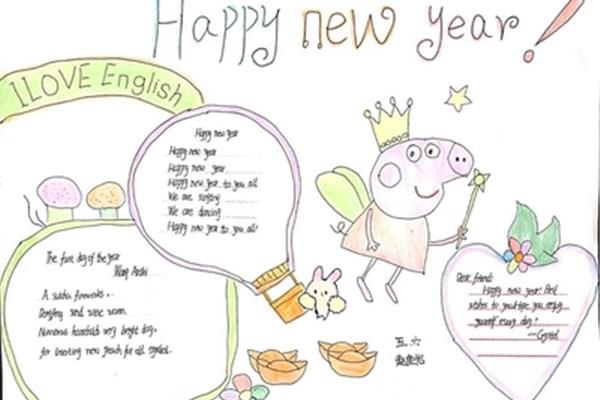 Happy new year!
I LOVE English
Happy new year
Happy new year
Happy new year
Happy new year to you all
We are singing
We are dancing
Happy new year to you all!
The first day of the year
Wang Anshi
A suishu fireworks,
and wine warm.
Numerous household very bright day,
for new for all symbol.
Dear friend:
Happy new year! Best
wishes to you! Hope you enjoy
yourself every day!
—Crystal
五.六